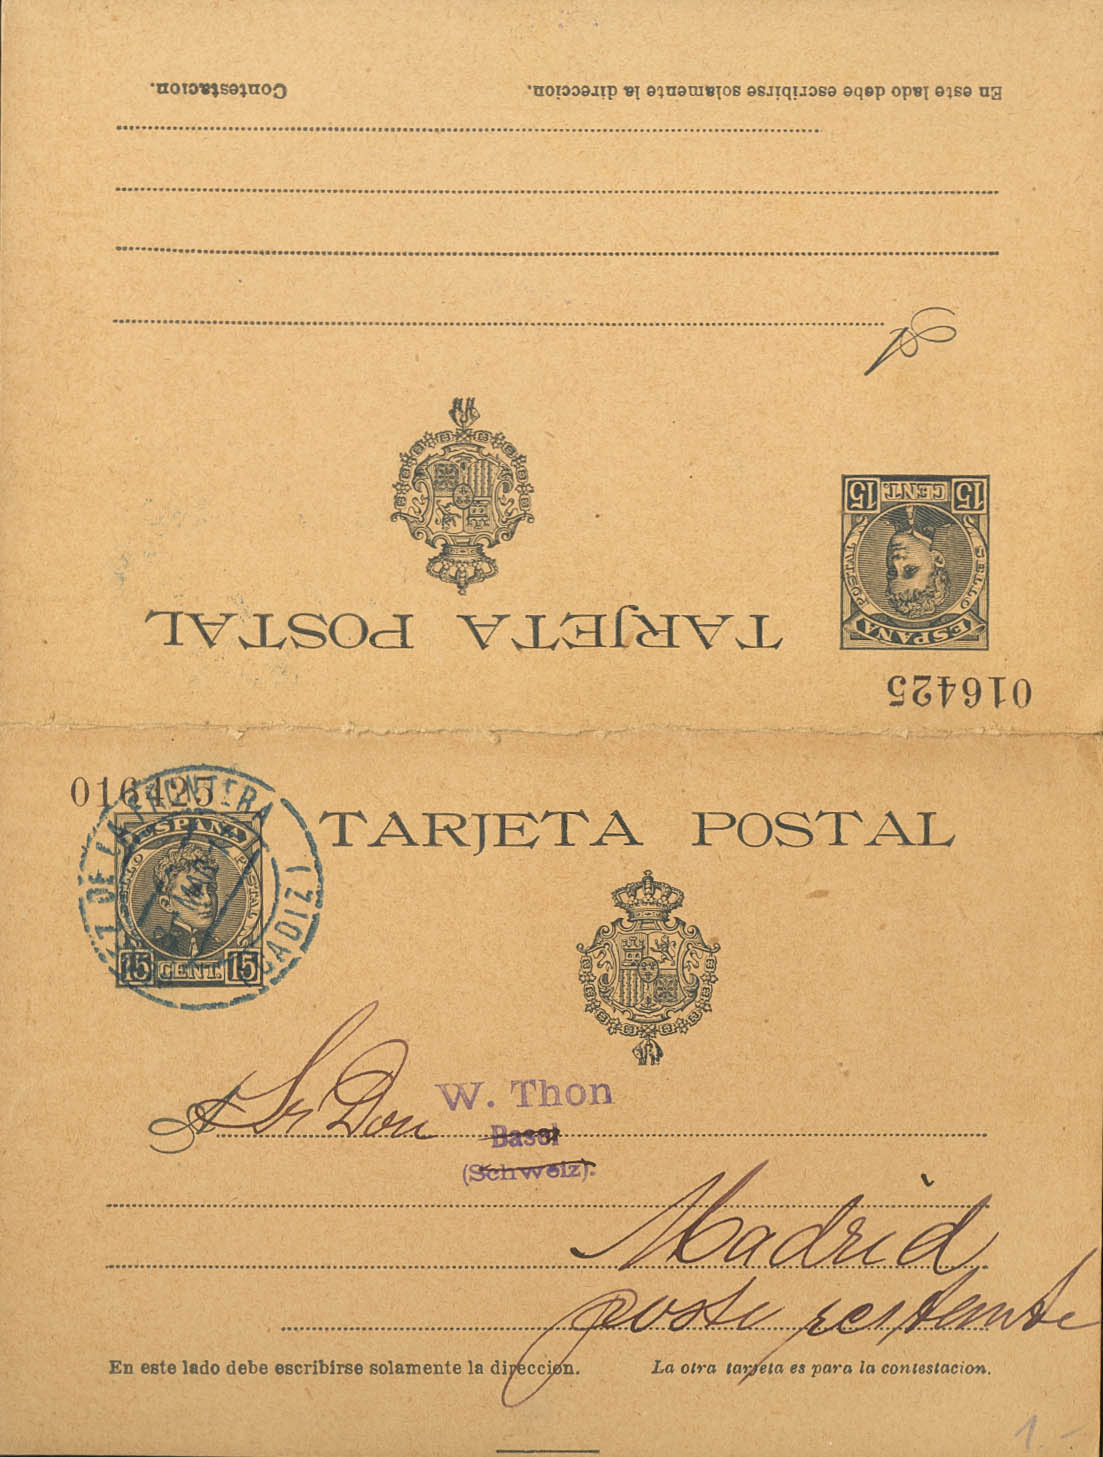 Contestacion.
En este lado debe escribirse solamente la direccion.
A
15 CENT. 15
SELLO POSTAL
ESPAÑA
TARJETA POSTAL
016425
016425
TARJETA POSTAL
Z DE LA FRONTERA
(CADIZ)
ESPAÑA
SELLO POSTAL
15 CENT. 15
A Sr Don W. Thon
Basel
(Schweiz).
Madrid
poste restante
En este lado debe escribirse solamente la dirección. La otra tarjeta es para la contestacion.
1 -